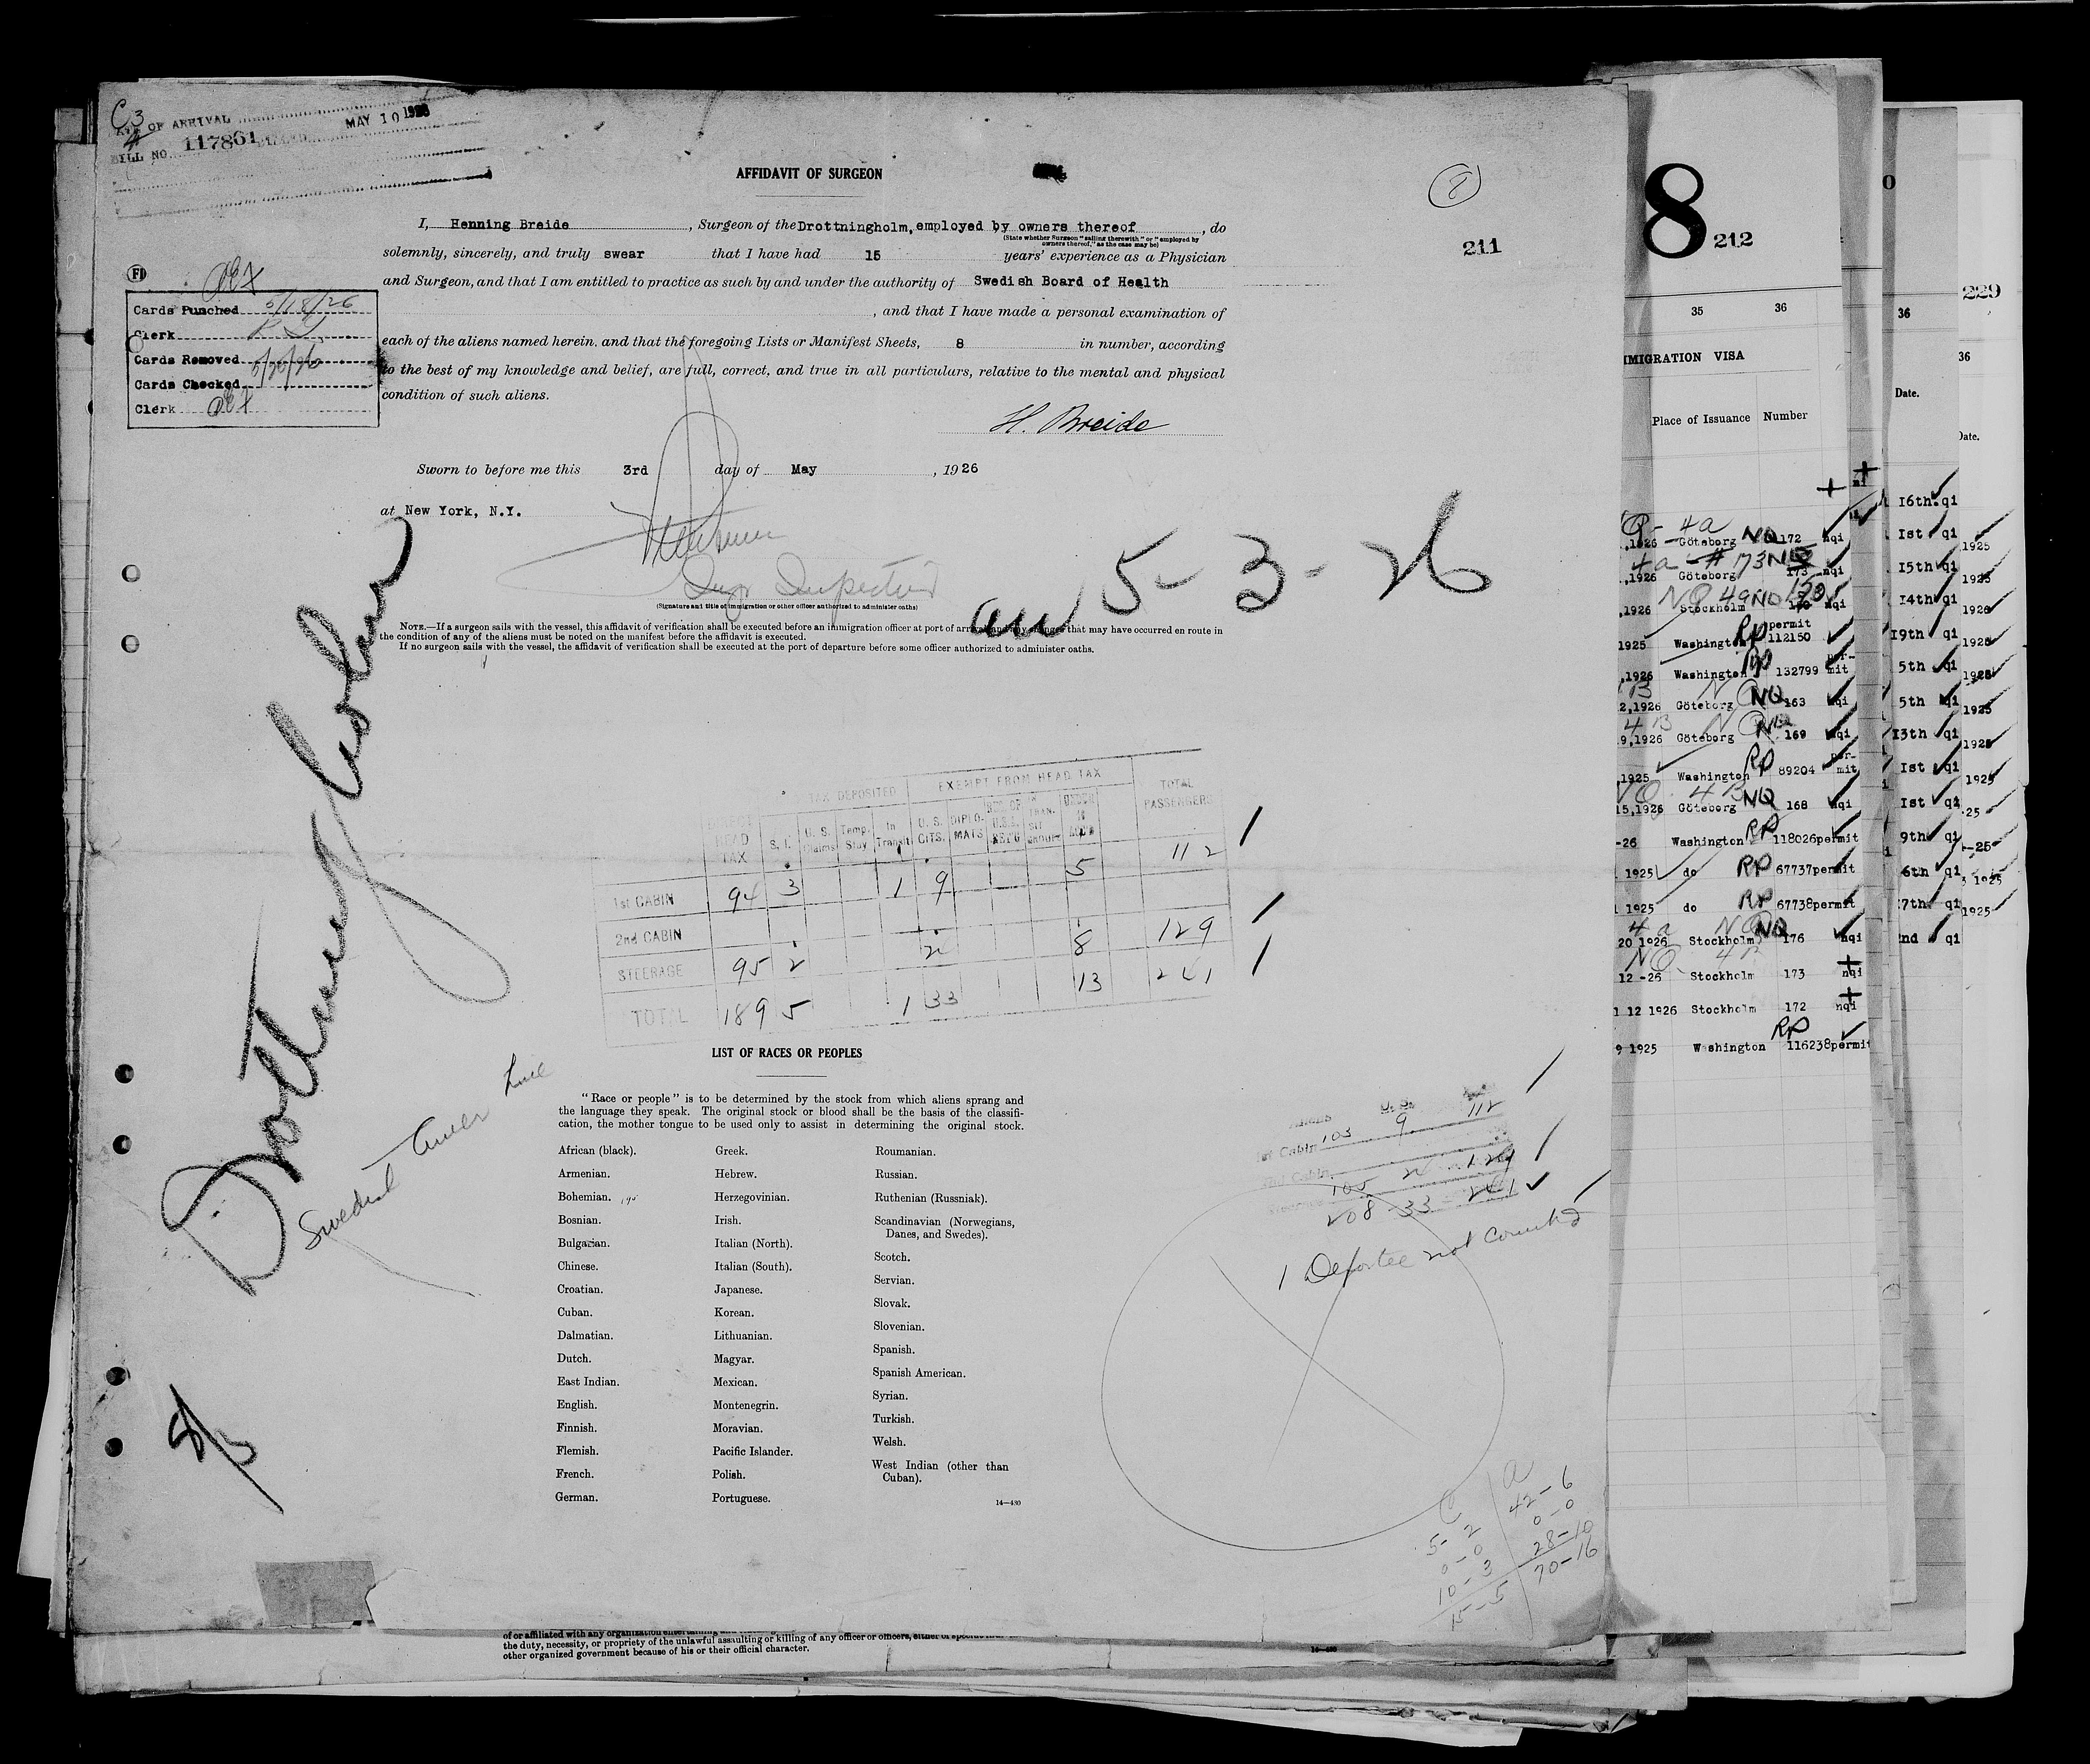 C3
DATE OF ARRIVAL MAY 10 1926
BILL NO. 117861
AFFIDAVIT OF SURGEON
8
211
I, Henning Breide, Surgeon of the Drottningholm, employed by owners thereof, do
(State whether Surgeon "sailing therewith" or "employed by
owners thereof," as the case may be)
solemnly, sincerely, and truly swear that I have had 15 years' experience as a Physician
and Surgeon, and that I am entitled to practice as such by and under the authority of Swedish Board of Health
, and that I have made a personal examination of
each of the aliens named herein, and that the foregoing Lists or Manifest Sheets, 8 in number, according
to the best of my knowledge and belief, are full, correct, and true in all particulars, relative to the mental and physical
condition of such aliens.
H. Breide
FD
Cards Punched 5/18/26
Clerk
Cards Removed 5/20/26
Cards Checked
Clerk
Sworn to before me this 3rd day of May, 1926
at New York, N.Y.
Insp
(Signature and title of immigration or other officer authorized to administer oaths)
5-3-26
NOTE.—If a surgeon sails with the vessel, this affidavit of verification shall be executed before an immigration officer at port of arrival and any changes that may have occurred en route in
the condition of any of the aliens must be noted on the manifest before the affidavit is executed.
If no surgeon sails with the vessel, the affidavit of verification shall be executed at the port of departure before some officer authorized to administer oaths.
Drottningholm
Swedish Amer Line
5/3
TAX DEPOSITED EXEMPT FROM HEAD TAX TOTAL PASSENGERS
HEAD TAX S. I. U. S. Claims Temp. Stay In Transit U. S. CITS. DIPLOMATS UNDER 16
1st CABIN 94 3 1 9 5 112
2nd CABIN
STEERAGE 95 2 24 8 129
TOTAL 189 5 1 33 13 241
LIST OF RACES OR PEOPLES
"Race or people" is to be determined by the stock from which aliens sprang and
the language they speak. The original stock or blood shall be the basis of the classifi-
cation, the mother tongue to be used only to assist in determining the original stock.
African (black).
Armenian.
Bohemian.
Bosnian.
Bulgarian.
Chinese.
Croatian.
Cuban.
Dalmatian.
Dutch.
East Indian.
English.
Finnish.
Flemish.
French.
German.
Greek.
Hebrew.
Herzegovinian.
Irish.
Italian (North).
Italian (South).
Japanese.
Korean.
Lithuanian.
Magyar.
Mexican.
Montenegrin.
Moravian.
Pacific Islander.
Polish.
Portuguese.
Roumanian.
Russian.
Ruthenian (Russniak).
Scandinavian (Norwegians,
Danes, and Swedes).
Scotch.
Servian.
Slovak.
Slovenian.
Spanish.
Spanish American.
Syrian.
Turkish.
Welsh.
West Indian (other than
Cuban).
14—430
U.S.
1st Cabin 103 9 112
2nd Cabin
105 24 129
208 33 241
1 Deportee not counted
C
5-2
0-0
10-3
15-5
a
42-6
0-0
28-10
70-16
of or affiliated with any organization
the duty, necessity, or propriety of the unlawful assaulting or killing of any officer or officers, either of specific
other organized government because of his or their official character.
8 212
35 36
IMMIGRATION VISA
Place of Issuance Number
,1926 Göteborg NQ 172 nqi
,1926 Göteborg 173 nqi
,1926 Stockholm nqi
1925 Washington RP permit 112150
,1926 Washington RP 132799 per-mit
2,1926 Göteborg NQ 163 nqi
9,1926 Göteborg NQ 169 nqi
,1925 Washington RP 89204 per-mit
15,1926 Göteborg NQ 168 nqi
-26 Washington RP 118026permit
1925 do RP 67737permit
1925 do RP 67738permit
20 1926 Stockholm NQ 176 nqi
12 -26 Stockholm 173 nqi
12 1926 Stockholm 172 nqi
9 1925 Washington RP 116238permit
36
Date.
16th qi
1st qi
15th qi
14th qi
19th qi
5th qi
5th qi
13th qi
1st qi
1st qi
9th qi
6th qi
7th qi
2nd qi
229
36
Date.
1925
1925
1926
1925
1925
1925
1925
1925
-25
-25
1925
1925